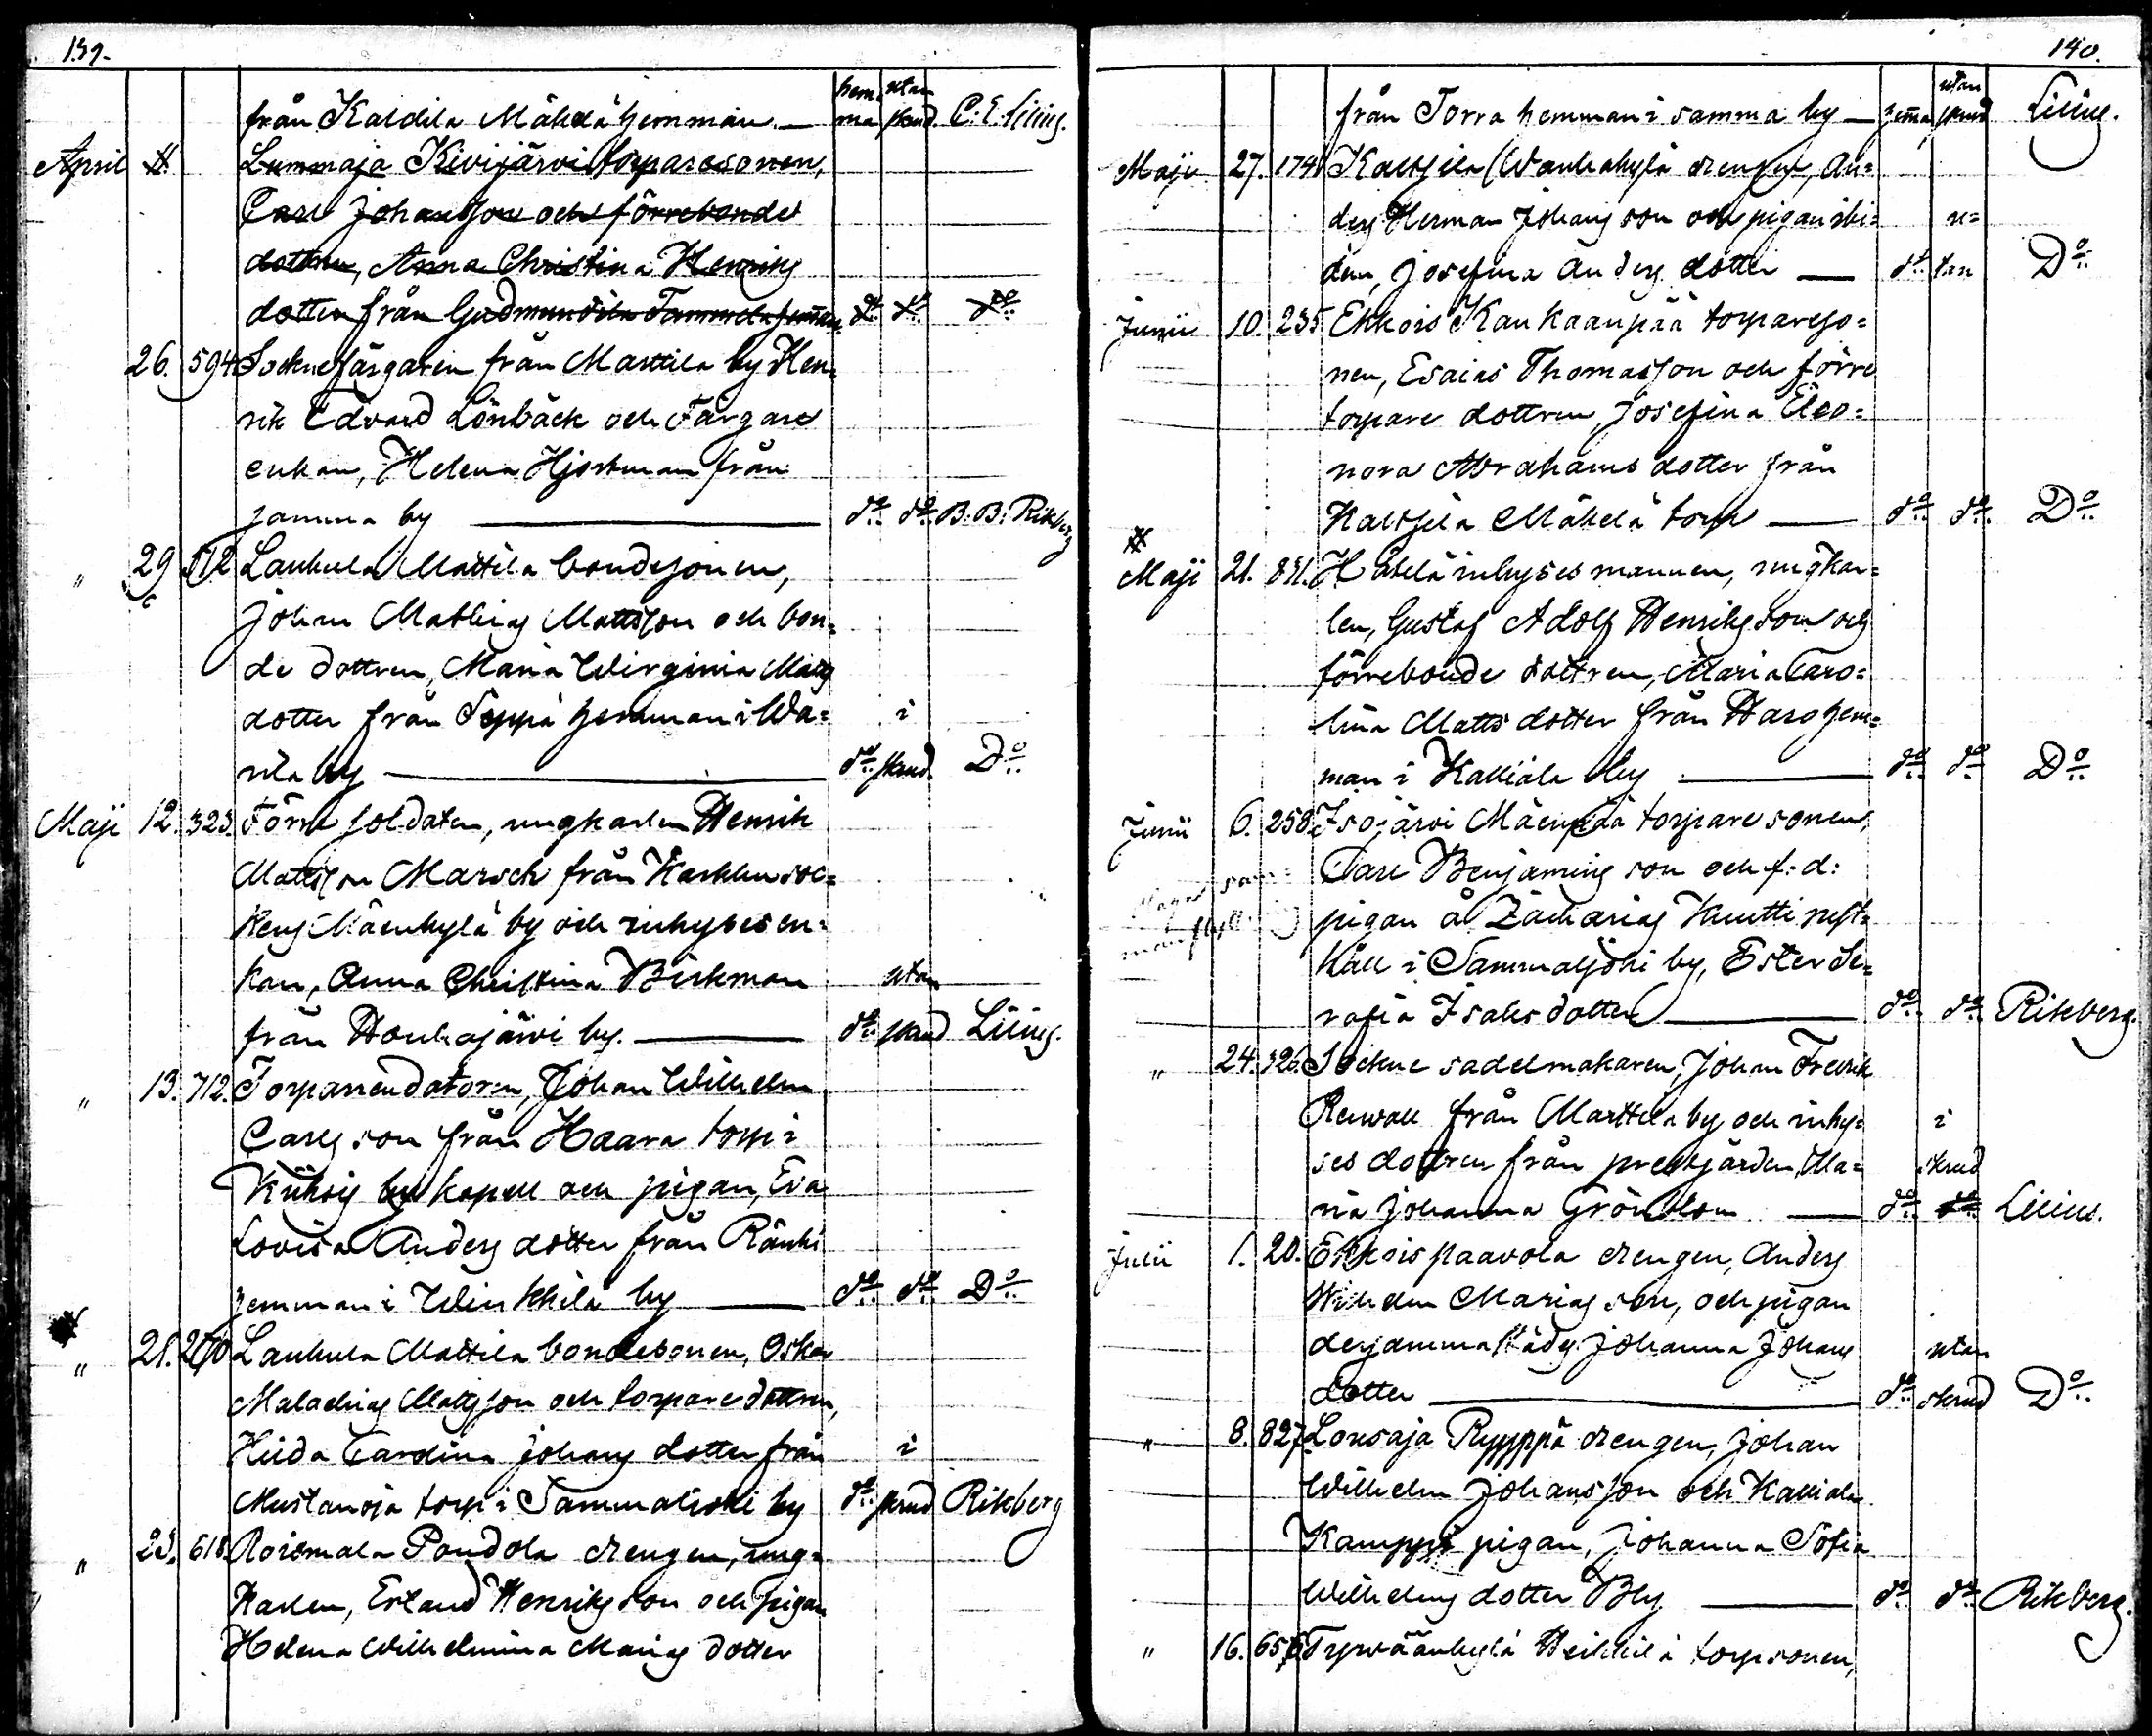 139.
från Kaldila Mäkelä hemman — hem-ma utan skrud. C. E. Lilius.
April Lummaja Kivijärvi torparesonen,
Carl Johansson och förrebonde
dottren, Anna Christina Henriks
dotter från Gudmundila Tammela hemman do do do
26. 594 Sockne färgaren från Marttila by Hen=
rik Edvard Lönbäck och Färgare
enkan, Helena Hjortman från
samma by — do do B: B: Rikberg
" 29 512 Laukula Mattila bondesonen,
Johan Mathias Mattsson och bon=
de dottren, Maria Wirginia Matts
dotter från Seppä hemman i Wa= i
rila by — do skrud. Do
Maji 12. 323. Förre soldaten, ungkarlen Henrik
Mattsson Marsch från Karkku soc=
kens Mäenkylä by och inhyses en=
kan, Anna Christina Birkman utan
från Houhajärvi by. — do skrud Lilius.
" 13. 712. Torparen datorn, Johan Wilhelm
Carls son från Haara torp i
Kiikois kapell och pigan, Eva
Lovisa Anders dotter från Ränki
hemman i Winkkilä by — do do Do
" 21. 270 Laukula Mattila bondesonen, Oskar
Malachias Matsson och torpare dottren,
Hilda Carolina Johans dotter från i
Mustanoja torp i Sammaljoki by do skrud Rikberg
" 23. 618. Roismala Pondola drengen, ung=
karlen, Erland Henriks son och pigan
Helena Wilhelmina Marias dotter
140.
från Torra hemman i samma by — hemma utan skrud Lilius.
Maji 27. 174 Kaltsila Wanhakylä drengen, An=
ders Herman Johans son och pigan ibi= u=
dem, Josefina Anders dotter — do tan Do
Junii 10. 235 Ekkois Kankaanpää torpareso=
nen, Esaias Thomasson och förre
torpare dottren Josefina Eleo=
nora Abrahams dotter från
Kaltsila Mäkelä torp — do do Do
Maji 21. 831. Häkilä inhyses mannen, ungkar=
len, Gustaf Adolf Henriksson och
förrebonde dottren, Maria Caro=
lina Matts dotter från Haro hem=
man i Kalliala by — do do Do
Junii 6. 258. Isojärvi Mäenpää torpare sonen,
Carl Benjamins son och f: d:
pigan å Zacharias Knutti nyst=
håll i Sammaljoki by, Ester Se=
rafia Isaks dotter — do do Rikberg.
" 24. 326. Sockne sadelmakaren, Johan Fredrik
Renvall från Marttila by och inhy= i
ses dottren från prestgården, Ma= skrud
ria Johanna Grönblom — do do Lilius.
Julii 1. 20. Ekkois Paavola drengen, Anders
Wilhelm Marias son, och pigan
dersammastädes Johanna Johans utan
dotter — do skrud Do
" 8. 827. Lousaja Ryyppä drengen, Johan
Wilhelm Johansson och Kalliala
Kamppi pigan, Johanna Sofia
Wilhelms dotter Bly — do do Rikberg.
" 16. 656 Tyrväänkylä Heikkilä torp sonen,